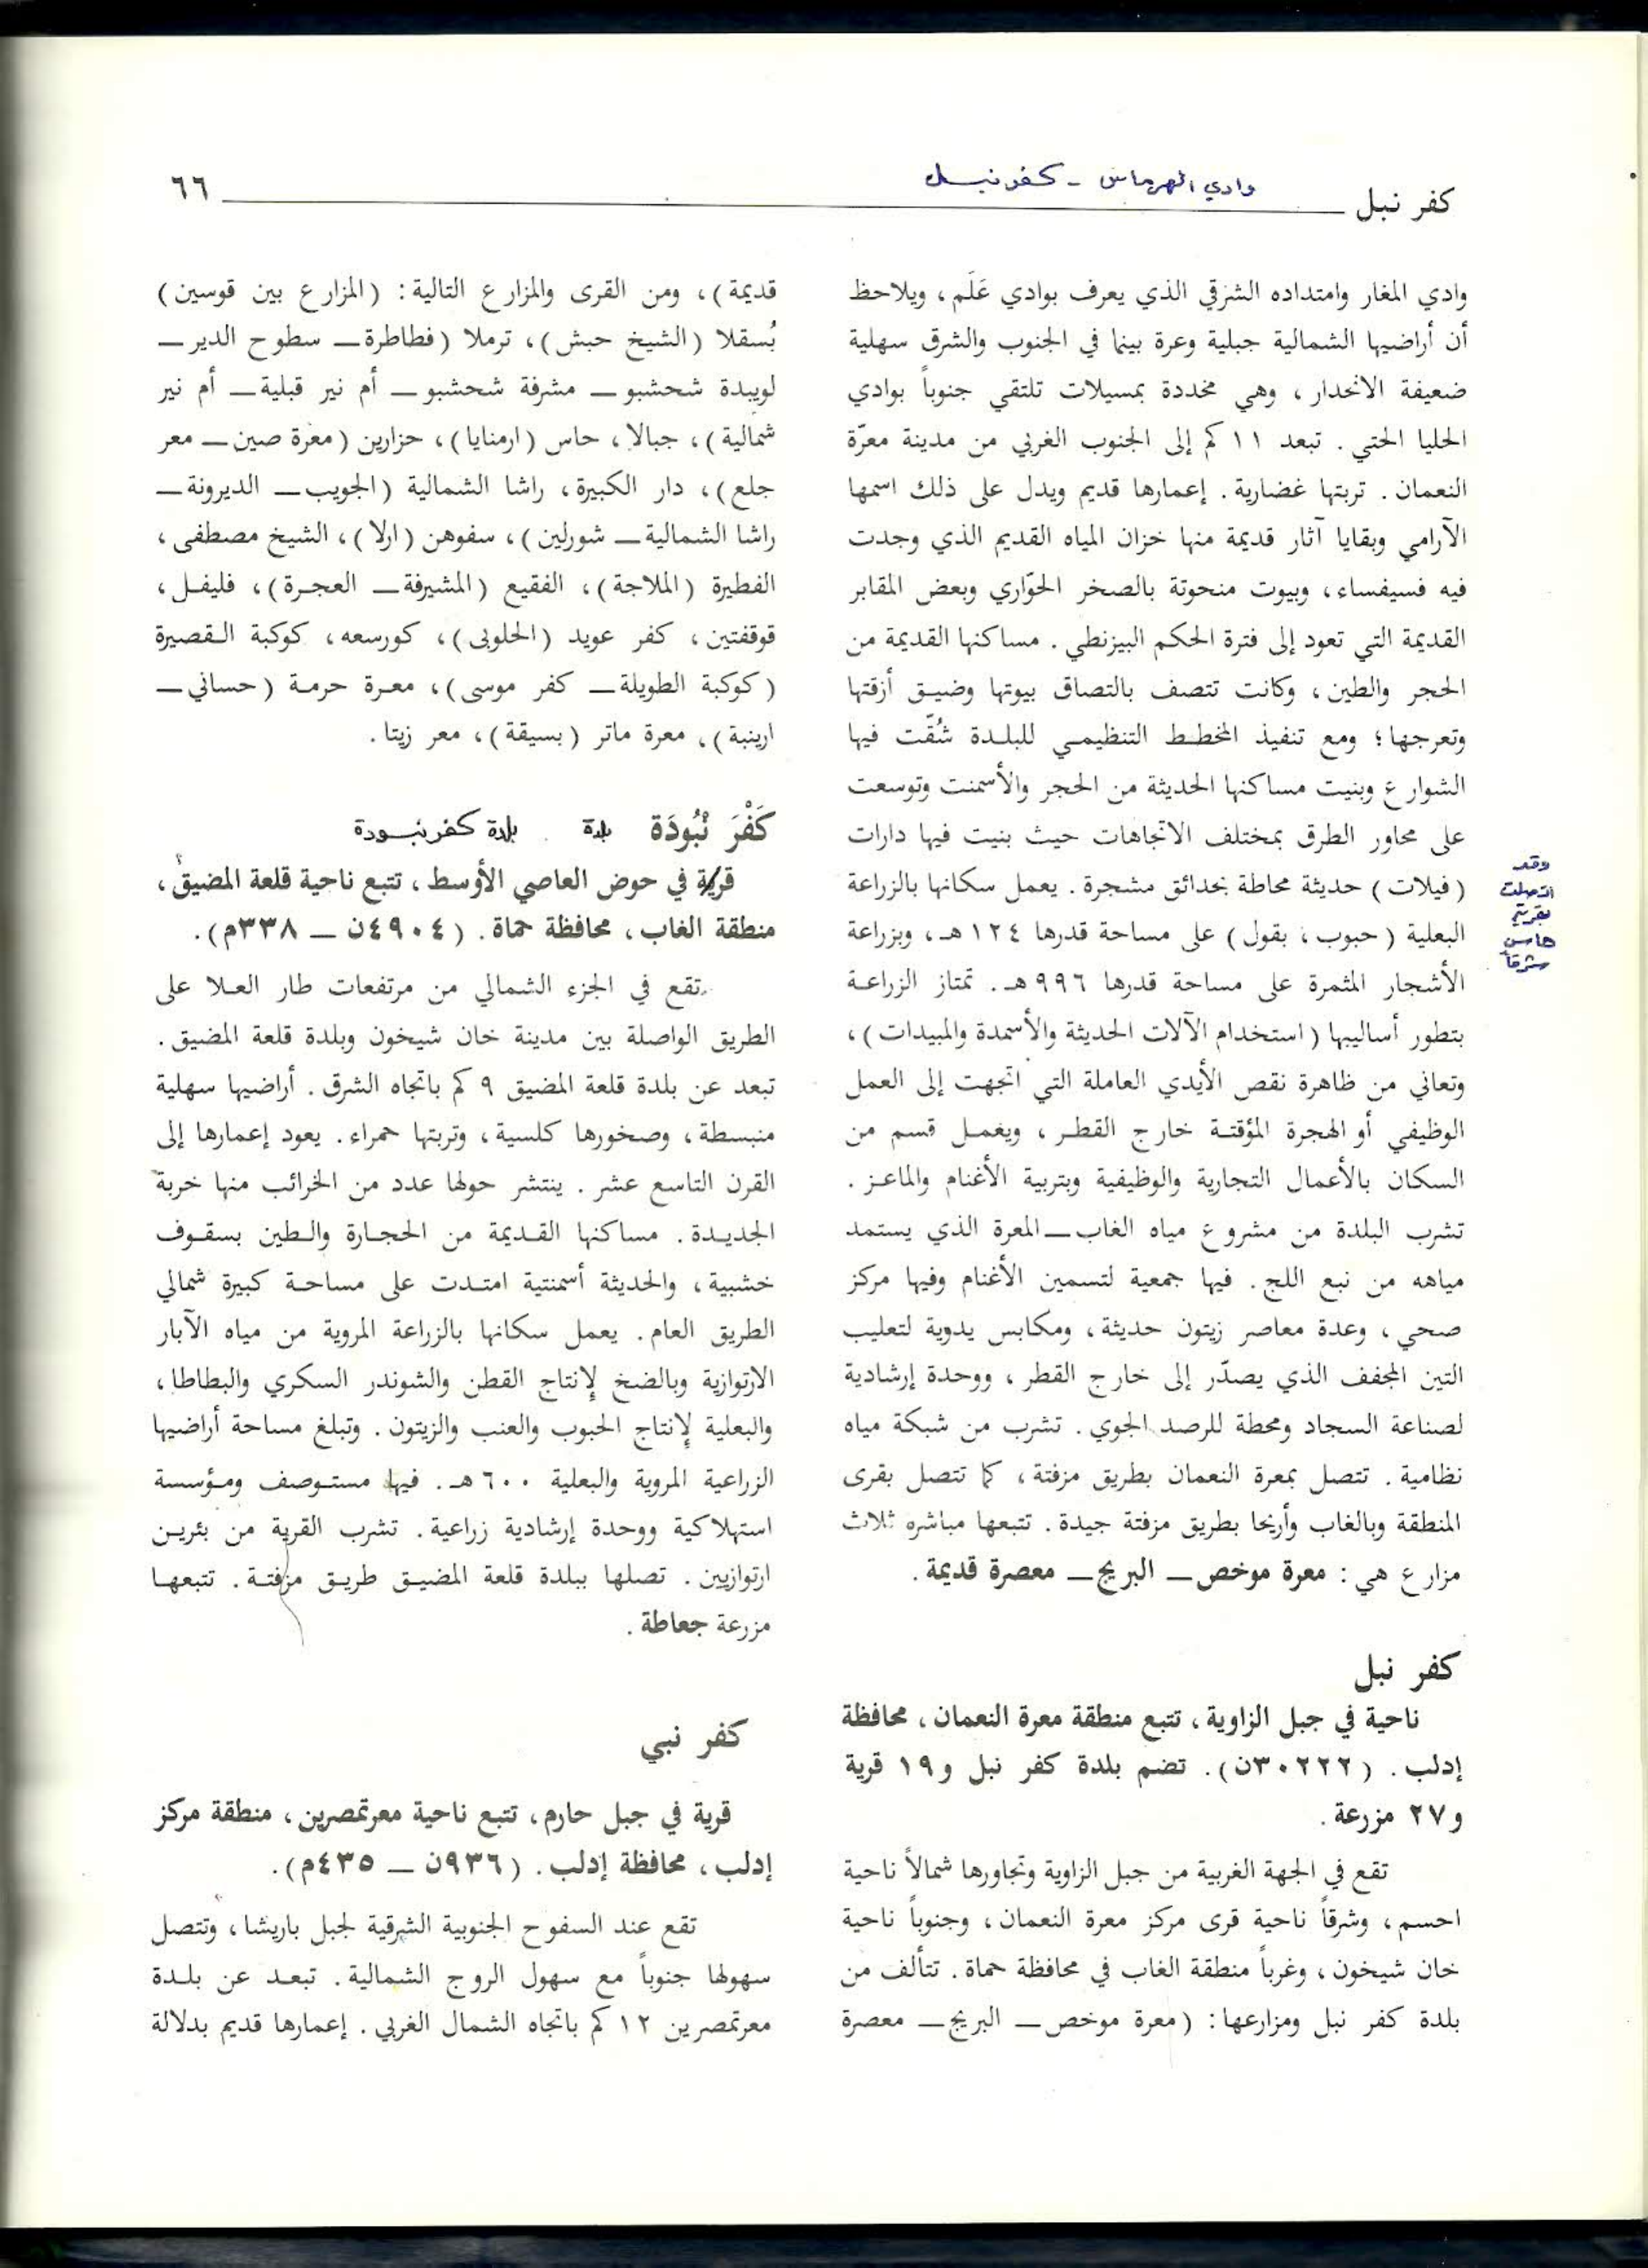 كفر نبل
وادي الهرماس - كفرنبل
٦٦
وادي المغار وامتداده الشرقي الذي يعرف بوادي عَلَم، ويلاحظ
أن أراضيها الشمالية جبلية وعرة بينما في الجنوب والشرق سهلية
ضعيفة الانحدار، وهي مخددة بمسيلات تلتقي جنوباً بوادي
الحليا الحتي. تبعد ١١ كم إلى الجنوب الغربي من مدينة معرّة
النعمان. تربتها غضارية. إعمارها قديم ويدل على ذلك اسمها
الآرامي وبقايا آثار قديمة منها خزان المياه القديم الذي وجدت
فيه فسيفساء، وبيوت منحوتة بالصخر الحوّاري وبعض المقابر
القديمة التي تعود إلى فترة الحكم البيزنطي. مساكنها القديمة من
الحجر والطين، وكانت تتصف بالتصاق بيوتها وضيق أزقتها
وتعرجها؛ ومع تنفيذ المخطط التنظيمي للبلدة شُقّت فيها
الشوارع وبنيت مساكنها الحديثة من الحجر والأسمنت وتوسعت
على محاور الطرق بمختلف الاتجاهات حيث بنيت فيها دارات
(فيلات) حديثة محاطة بحدائق مشجرة. يعمل سكانها بالزراعة
البعلية (حبوب، بقول) على مساحة قدرها ١٢٤ هـ، وبزراعة
الأشجار المثمرة على مساحة قدرها ٩٩٦ هـ. تمتاز الزراعة
بتطور أساليبها (استخدام الآلات الحديثة والأسمدة والمبيدات)،
وتعاني من ظاهرة نقص الأيدي العاملة التي اتجهت إلى العمل
الوظيفي أو الهجرة المؤقتة خارج القطر، ويعمل قسم من
السكان بالأعمال التجارية والوظيفية وبتربية الأغنام والماعز.
تشرب البلدة من مشروع مياه الغاب ـ المعرة الذي يستمد
مياهه من نبع اللج. فيها جمعية لتسمين الأغنام وفيها مركز
صحي، وعدة معاصر زيتون حديثة، ومكابس يدوية لتعليب
التين المجفف الذي يصدّر إلى خارج القطر، ووحدة إرشادية
لصناعة السجاد ومحطة للرصد الجوي. تشرب من شبكة مياه
نظامية. تتصل بمعرة النعمان بطريق مزفتة، كما تتصل بقرى
المنطقة وبالغاب وأريحا بطريق مزفتة جيدة. تتبعها مباشره ثلاث
مزارع هي: معرة موخص ـ البريج ـ معصرة قديمة.
وقد
اتصلت
بقرية
حاس
شرقاً
كفر نبل
ناحية في جبل الزاوية، تتبع منطقة معرة النعمان، محافظة
إدلب. (٣٠٢٢٢ن). تضم بلدة كفر نبل و ١٩ قرية
و ٢٧ مزرعة.
تقع في الجهة الغربية من جبل الزاوية وتجاورها شمالاً ناحية
احسم، وشرقاً ناحية قرى مركز معرة النعمان، وجنوباً ناحية
خان شيخون، وغرباً منطقة الغاب في محافظة حماة. تتألف من
بلدة كفر نبل ومزارعها: (معرة موخص ـ البريج ـ معصرة
قديمة)، ومن القرى والمزارع التالية: (المزارع بين قوسين)
بُسقلا (الشيخ حبش)، ترملا (فطاطرة ـ سطوح الدير ـ
لويبدة شحشبو ـ مشرفة شحشبو ـ أم نير قبلية ـ أم نير
شمالية)، جبالا، حاس (ارمنايا)، حزارين (معرة صين ـ معر
جلع)، دار الكبيرة، راشا الشمالية (الجويب ـ الديرونة ـ
راشا الشمالية ـ شورلين)، سفوهن (ارلا)، الشيخ مصطفى،
الفطيرة (الملاجة)، الفقيع (المشيرفة ـ العجرة)، فليفل،
قوقفتين، كفر عويد (الحلوبى)، كورسعه، كوكبة القصيرة
(كوكبة الطويلة ـ كفر موسى)، معرة حرمة (حساني ـ
ارينبة)، معرة ماتر (بسيقة)، معر زيتا.
كَفْرَ نْبُودَة بلدة بلدة كفرنبودة
قرية في حوض العاصي الأوسط، تتبع ناحية قلعة المضيق،
منطقة الغاب، محافظة حماة. (٤٩٠٤ن ـ ٣٣٨م).
تقع في الجزء الشمالي من مرتفعات طار العلا على
الطريق الواصلة بين مدينة خان شيخون وبلدة قلعة المضيق.
تبعد عن بلدة قلعة المضيق ٩ كم باتجاه الشرق. أراضيها سهلية
منبسطة، وصخورها كلسية، وتربتها حمراء. يعود إعمارها إلى
القرن التاسع عشر. ينتشر حولها عدد من الخرائب منها خربة
الجديدة. مساكنها القديمة من الحجارة والطين بسقوف
خشبية، والحديثة أسمنتية امتدت على مساحة كبيرة شمالي
الطريق العام. يعمل سكانها بالزراعة المروية من مياه الآبار
الارتوازية وبالضخ لإنتاج القطن والشوندر السكري والبطاطا،
والبعلية لإنتاج الحبوب والعنب والزيتون. وتبلغ مساحة أراضيها
الزراعية المروية والبعلية ٦٠٠ هـ. فيها مستوصف ومؤسسة
استهلاكية ووحدة إرشادية زراعية. تشرب القرية من بئرين
ارتوازيين. تصلها ببلدة قلعة المضيق طريق مزفتة. تتبعها
مزرعة جعاطة.
كفر نبي
قرية في جبل حارم، تتبع ناحية معرتمصرين، منطقة مركز
إدلب، محافظة إدلب. (٩٣٦ن ـ ٤٣٥م).
تقع عند السفوح الجنوبية الشرقية لجبل باريشا، وتتصل
سهولها جنوباً مع سهول الروج الشمالية. تبعد عن بلدة
معرتمصرين ١٢ كم باتجاه الشمال الغربي. إعمارها قديم بدلالة